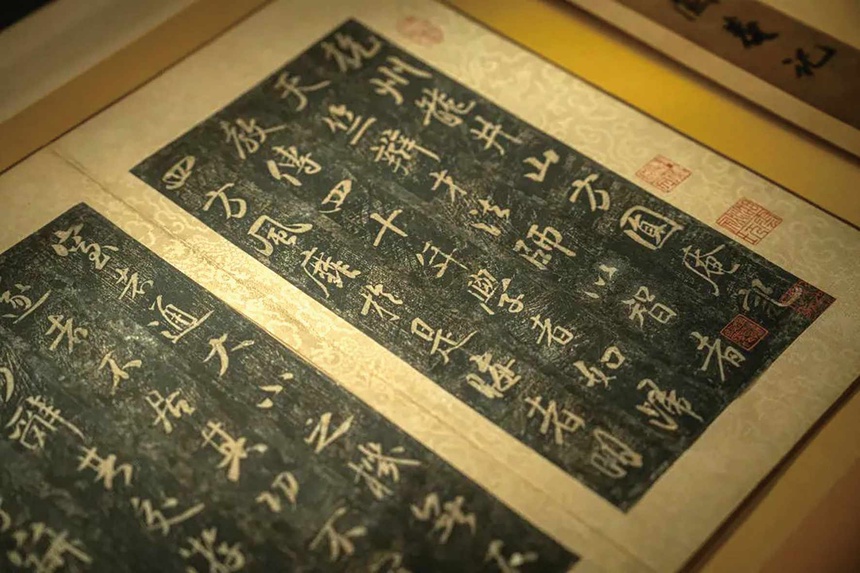 庵記
杭州龍井山方圓庵記
天竺辯才法師以智者
教傳四十年學者如歸
四方風靡於是晦者明
窒者通大小之機無不
遂者不居其功不
辭其交遊